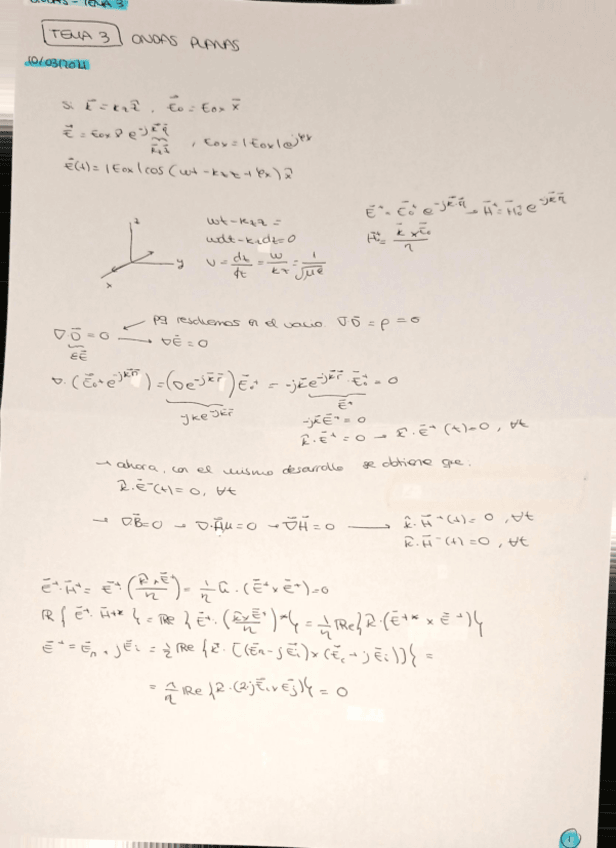 TEMA 3
TEMA 3 ONDAS PLANAS
Si k⃗ = k₂ẑ , E⃗₀ = E₀ₓ x⃗
, E₀ₓ = |E₀ₓ| e^jφx
E⃗(t) = |E₀ₓ| cos (wt - k₂z + φx) x̂
z
y
x
wt - k₂z =
wdt - k₂dz = 0
v = dz/dt = w/k₂ = 1/√με
E⃗⁺ = E⃗₀⁺ e^-jk⃗r⃗ → H⃗⁺ = H⃗₀⁺ e^-jk⃗r⃗
pq resolvemos en el vacío. ∇D⃗ = ρ = 0
∇·D⃗ = 0 → ∇E⃗ = 0
εE⃗
∇·(E⃗₀⁺ e^-jk⃗r⃗) = (∇e^-jk⃗r⃗) E⃗₀⁺ = -jk⃗e^-jk⃗r⃗·E⃗₀⁺ = 0
E⃗⁺
-jk⃗E⃗⁺ = 0
k̂·E⃗⁺ = 0 → k̂·E⃗⁺(t) = 0, ∀t
→ ahora, con el mismo desarrollo se obtiene que.
k̂·E⃗⁻(t) = 0, ∀t
→ ∇B⃗ = 0 → ∇·H⃗μ = 0 → ∇H⃗ = 0 → k̂·H⃗⁺(t) = 0, ∀t
k̂·H⃗⁻(t) = 0, ∀t
E⃗⁺·H⃗⁺ = E⃗⁺·(k̂×E⃗⁺/η) = 1/η k̂·(E⃗⁺×E⃗⁺) = 0
Re{E⃗⁺·H⃗⁺*} = Re{E⃗⁺·(k̂×E⃗⁺/η)*} = 1/η Re{k̂·(E⃗⁺*×E⃗⁺)}
E⃗⁺ = E⃗r + jE⃗i = 1/η Re{k̂·[(E⃗r - jE⃗i)×(E⃗r + jE⃗i)]} =
= 1/η Re{k̂·(2jE⃗r×E⃗i)} = 0
1